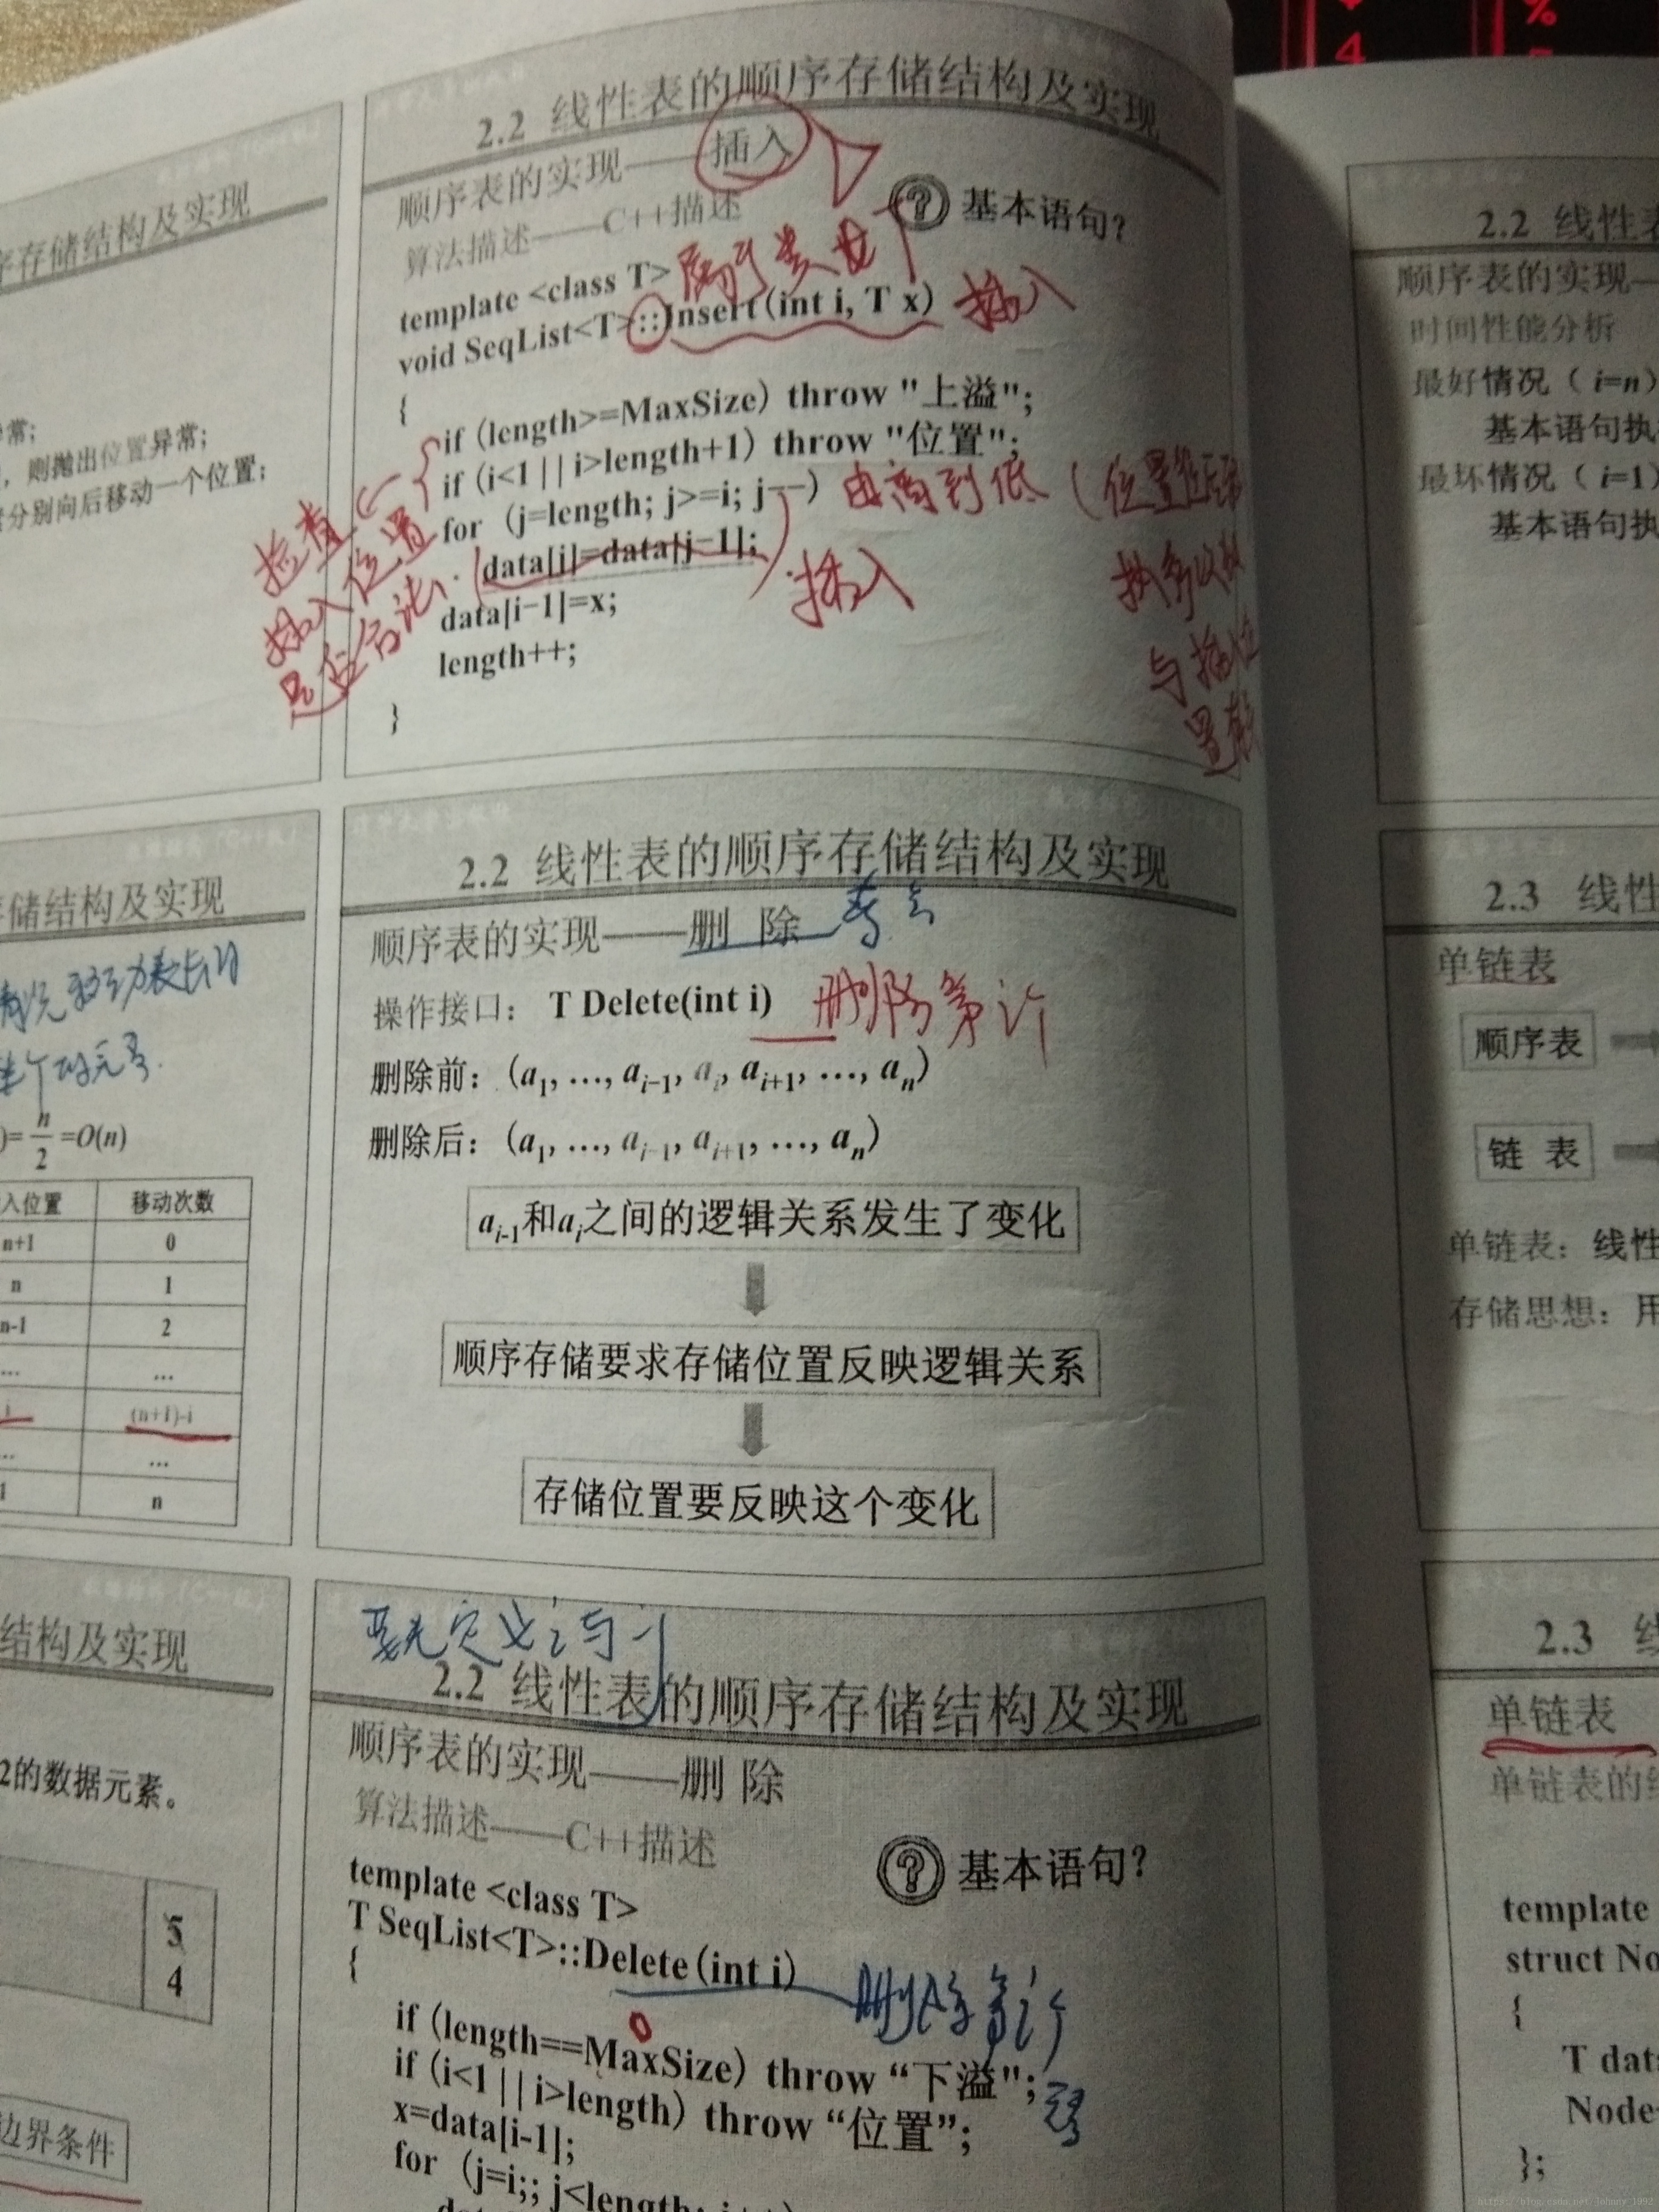 2.2 线性表的顺序存储结构及实现
顺序表的实现——插入
算法描述——C++描述
? 基本语句?
template <class T>
void SeqList<T>::Insert(int i, T x) 插入
{
if (length>=MaxSize) throw "上溢";
if (i<1 || i>length+1) throw "位置";
for (j=length; j>=i; j--) 由高到低
data[j]=data[j-1]; 插入
data[i-1]=x;
length++;
}
检查
插入位置
是否合法
序存储结构及实现
常;
，则抛出位置异常;
分别向后移动一个位置;
2.2 线性表的顺序存储结构及实现
顺序表的实现——删 除
操作接口： T Delete(int i) 删除第i个
删除前：（a1, …, ai-1, ai, ai+1, …, an）
删除后：（a1, …, ai-1, ai+1, …, an）
ai-1和ai之间的逻辑关系发生了变化
顺序存储要求存储位置反映逻辑关系
存储位置要反映这个变化
存储结构及实现
)= n/2 =O(n)
入位置 移动次数
n+1 0
n 1
n-1 2
… …
i (n+1)-i
… …
1 n
要先定义i与j
2.2 线性表的顺序存储结构及实现
顺序表的实现——删 除
算法描述——C++描述
? 基本语句?
template <class T>
T SeqList<T>::Delete(int i) 删除第i个
{
0
if (length==MaxSize) throw “下溢";
if (i<1 || i>length) throw “位置”;
x=data[i-1];
for (j=i;; j<length; j++)
结构及实现
2的数据元素。
5
4
边界条件
2.2 线性表
顺序表的实现—
时间性能分析
最好情况（ i=n）
基本语句执
最坏情况（ i=1）
基本语句执
2.3 线性
单链表
顺序表
链 表
单链表：线性
存储思想：用
2.3 线
单链表
单链表的结
template
struct No
{
T dat
Node
};
4
%